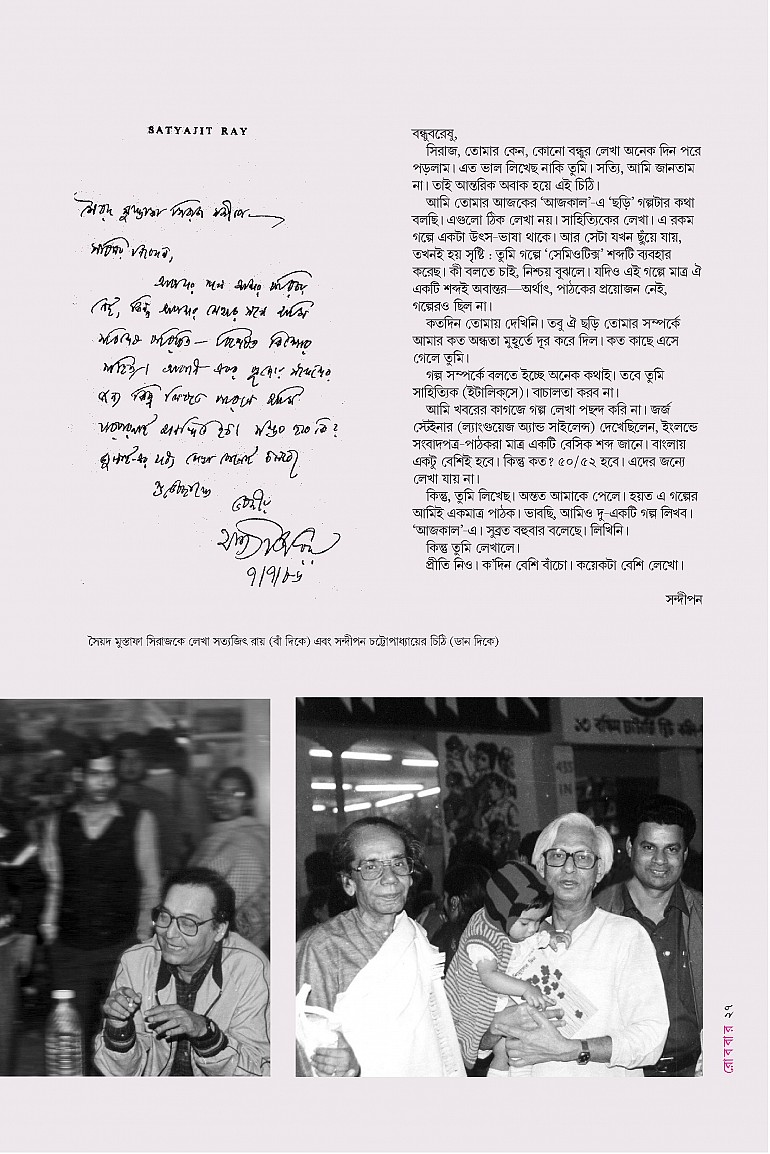 SATYAJIT RAY
সৈয়দ মুস্তাফা সিরাজ সমীপে—
সবিনয় নিবেদন,
আপনার সঙ্গে আমার পরিচয়
নেই, কিন্তু আপনার লেখার সঙ্গে আমি
পরিচিত— বিশেষত কিশোর
সাহিত্য। আগামী এবার সন্দেশের
জন্য কিছু লিখতে পারলে আমি
আনন্দিত হব। সম্ভব হবে কি?
জুলাই-এর মধ্যে লেখা পেলেই চলবে।
শুভেচ্ছান্তে
ভবদীয়
সত্যজিৎ রায়
৭/৭/৮৬
বন্ধুবরেষু,
সিরাজ, তোমার কেন, কোনো বন্ধুর লেখা অনেক দিন পরে
পড়লাম। এত ভাল লিখেছ নাকি তুমি। সত্যি, আমি জানতাম
না। তাই আন্তরিক অবাক হয়ে এই চিঠি।
আমি তোমার আজকের ‘আজকাল’-এ ‘ছড়ি’ গল্পটার কথা
বলছি। এগুলো ঠিক লেখা নয়। সাহিত্যিকের লেখা। এ রকম
গল্পে একটা উৎস-ভাষা থাকে। আর সেটা যখন ছুঁয়ে যায়,
তখনই হয় সৃষ্টি : তুমি গল্পে ‘সেমিওটিক্স’ শব্দটি ব্যবহার
করেছ। কী বলতে চাই, নিশ্চয় বুঝলে। যদিও এই গল্পে মাত্র ঐ
একটি শব্দই অবান্তর—অর্থাৎ, পাঠকের প্রয়োজন নেই,
গল্পেরও ছিল না।
কতদিন তোমায় দেখিনি। তবু ঐ ছড়ি তোমার সম্পর্কে
আমার কত অন্ধতা মুহূর্তে দূর করে দিল। কত কাছে এসে
গেলে তুমি।
গল্প সম্পর্কে বলতে ইচ্ছে অনেক কথাই। তবে তুমি
সাহিত্যিক (ইটালিক্‌সে)। বাচালতা করব না।
আমি খবরের কাগজে গল্প লেখা পছন্দ করি না। জর্জ
স্টেইনার (ল্যাংগুয়েজ অ্যান্ড সাইলেন্স) দেখেছিলেন, ইংলন্ডে
সংবাদপত্র-পাঠকরা মাত্র একটি বেসিক শব্দ জানে। বাংলায়
একটু বেশিই হবে। কিন্তু কত? ৫০/৫২ হবে। এদের জন্যে
লেখা যায় না।
কিন্তু, তুমি লিখেছ। অন্তত আমাকে পেলে। হয়ত এ গল্পের
আমিই একমাত্র পাঠক। ভাবছি, আমিও দু-একটি গল্প লিখব।
‘আজকাল’-এ। সুব্রত বহুবার বলেছে। লিখিনি।
কিন্তু তুমি লেখালে।
প্রীতি নিও। ক’দিন বেশি বাঁচো। কয়েকটা বেশি লেখো।
সন্দীপন
সৈয়দ মুস্তাফা সিরাজকে লেখা সত্যজিৎ রায় (বাঁ দিকে) এবং সন্দীপন চট্টোপাধ্যায়ের চিঠি (ডান দিকে)
১৩ বঙ্কিম চ্যাটার্জি স্ট্রিট
রোববার ২৭